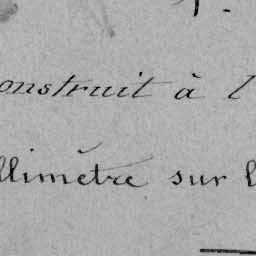 onstruit à l
llimètre sur l